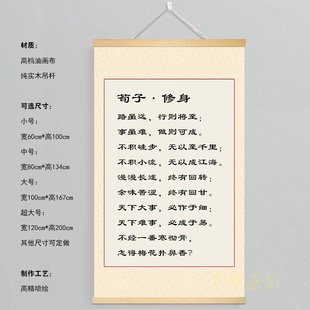 材质:
高档油画布
纯实木吊杆
可选尺寸:
小号:
宽60cm*高100cm
中号:
宽80cm*高134cm
大号:
宽100cm*高167cm
超大号:
宽120cm*高200cm
其他尺寸可定做
制作工艺:
高精喷绘
荀子·修身
路虽远，行则将至;
事虽难，做则可成。
不积跬步，无以至千里;
不积小流，无以成江海。
漫漫长途，终有回转;
余味苦涩，终有回甘。
天下大事，必作于细;
天下难事，必成于易。
不经一番寒彻骨，
怎得梅花扑鼻香?